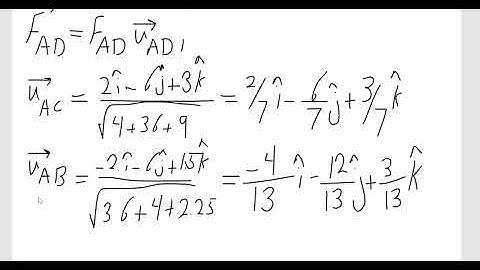 F⃗_AD = F_AD u⃗_AD,
u⃗_AC = (2î - 6ĵ + 3k̂) / √(4+36+9) = 2/7 î - 6/7 ĵ + 3/7 k̂
u⃗_AB = (-2î - 6ĵ + 1.5k̂) / √(36+4+2.25) = -4/13 î - 12/13 ĵ + 3/13 k̂